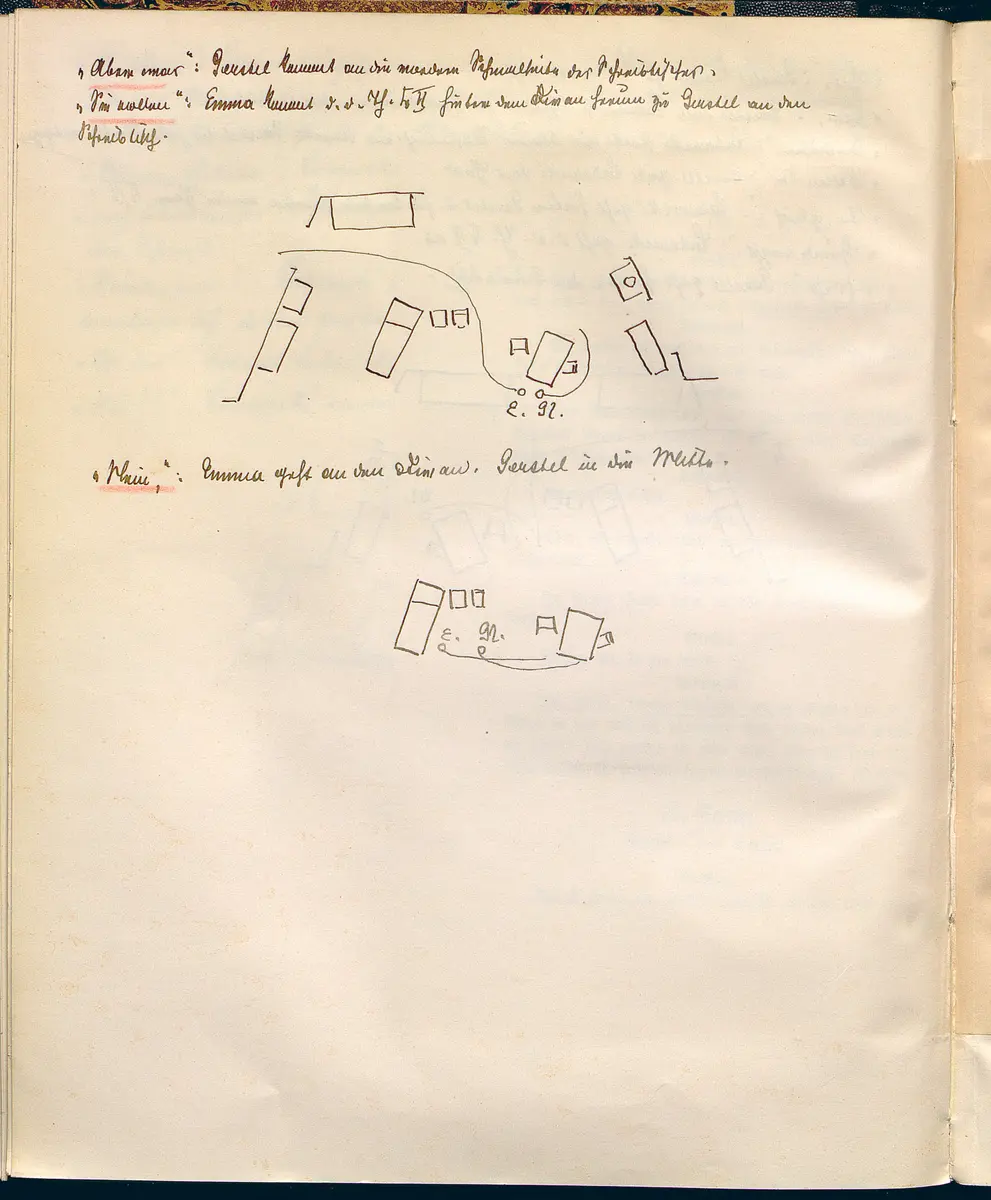 „Aber was“: Gerstel kommt an die vordere Schmalseite des Schreibtisches.
„Sie wollen“: Emma kommt d. d. Th. L II hinter dem Diwan herum zu Gerstel an den
Schreibtisch.
E. G.
„Nein,“: Emma geht an den Diwan. Gerstel in die Mitte.
E. G.